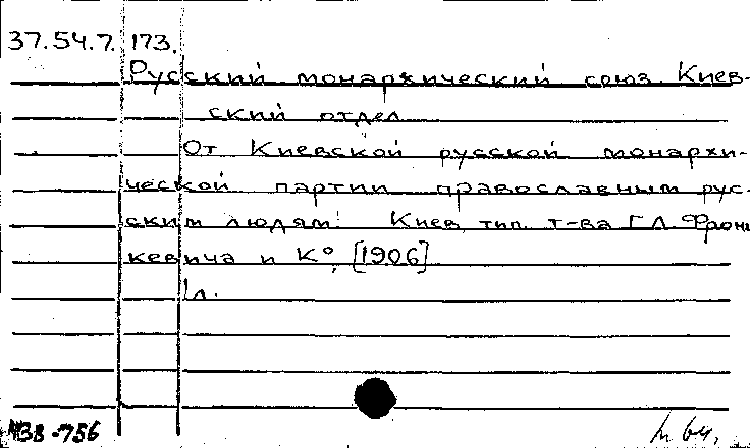 37.54.7. 173.
Русский монархический союз. Киев-
ский отдел
От Киевской русской монархи-
ческой партии православным рус-
ским людям! Киев, тип. т-ва Г.Л. Фрон-
кевича и К°, [1906].
1 л.
38-756